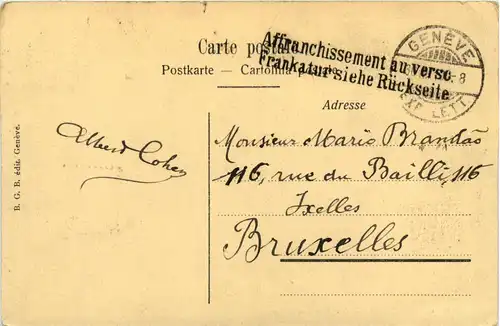 Carte postale
Affranchissement au verso
Frankatur siehe Rückseite
Postkarte — Cartolina postale
GENÈVE
EXP. LETT.
Adresse
Albert Cohen
Monsieur Mario Brandão
116, rue du Bailli, 116
Ixelles
Bruxelles
B. G. B. édit. Genève.